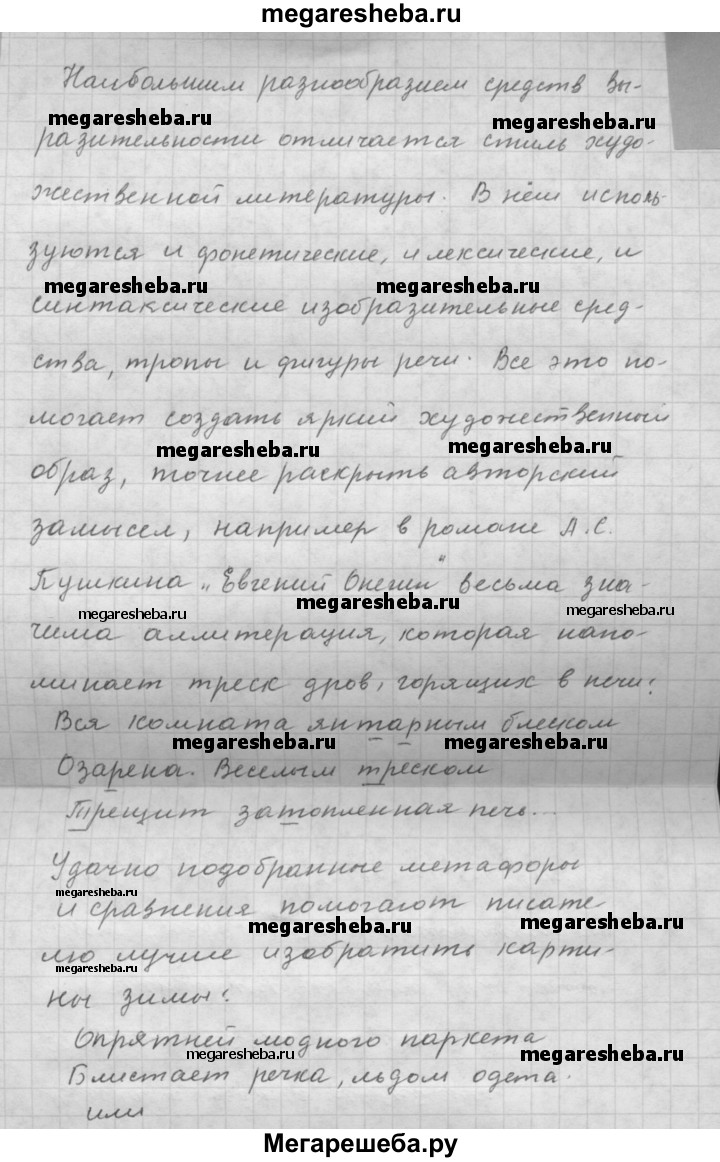 megaresheba.ru
Наибольшим разнообразием средств вы-
megaresheba.ru megaresheba.ru
разительности отличается стиль худо-
жественной литературы. В нём исполь-
зуются и фонетические, и лексические, и
megaresheba.ru megaresheba.ru
синтаксические изобразительные сред-
ства, тропы и фигуры речи. Все это по-
могает создать яркий художественный
megaresheba.ru megaresheba.ru
образ, точнее раскрыть авторский
замысел, например в романе А.С.
Пушкина „Евгений Онегин" весьма зна-
megaresheba.ru megaresheba.ru megaresheba.ru
чима аллитерация, которая напо-
минает треск дров, горящих в печи:
Вся комната янтарным блеском
megaresheba.ru megaresheba.ru
Озарена. Веселым треском
Трещит затопленная печь...
Удачно подобранные метафоры
megaresheba.ru
и сравнения помогают писате
megaresheba.ru megaresheba.ru
лю лучше изобразить карти-
megaresheba.ru
ны зимы:
Опрятней модного паркета
megaresheba.ru megaresheba.ru
Блистает речка, льдом одета.
или
Мегарешеба.ру